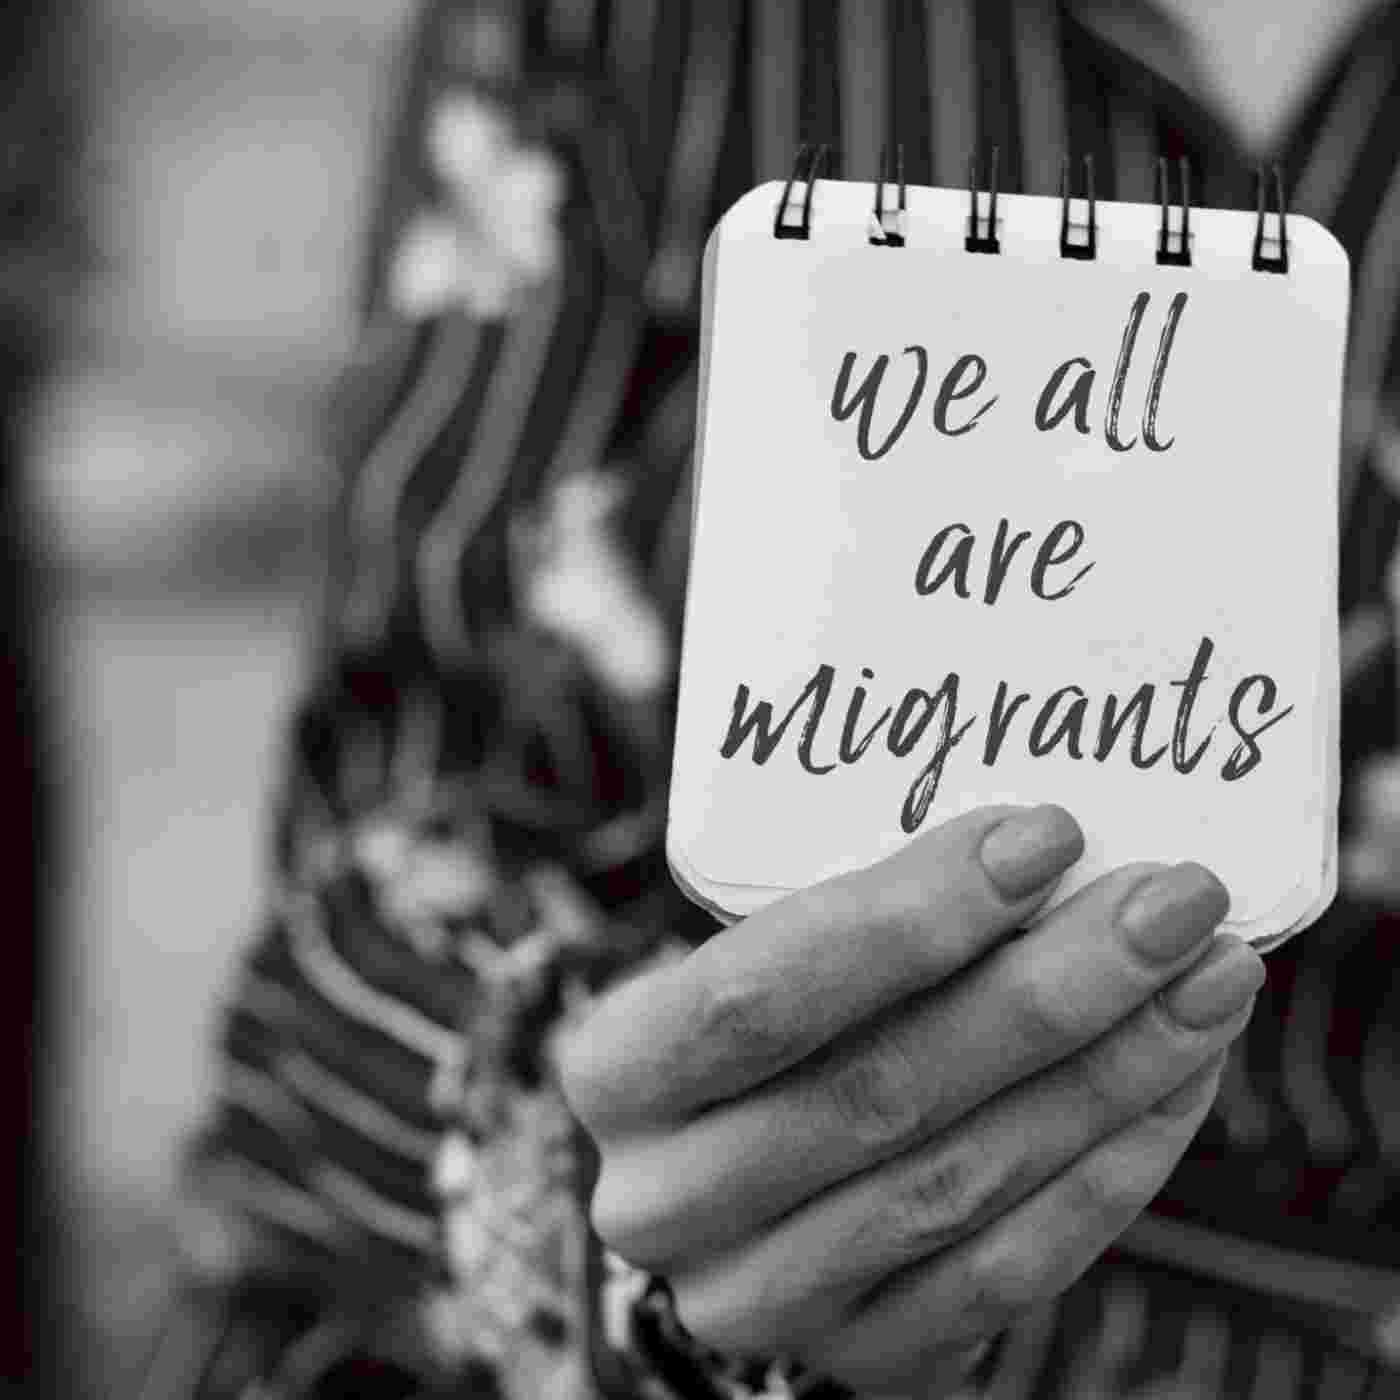 we all
are
migrants